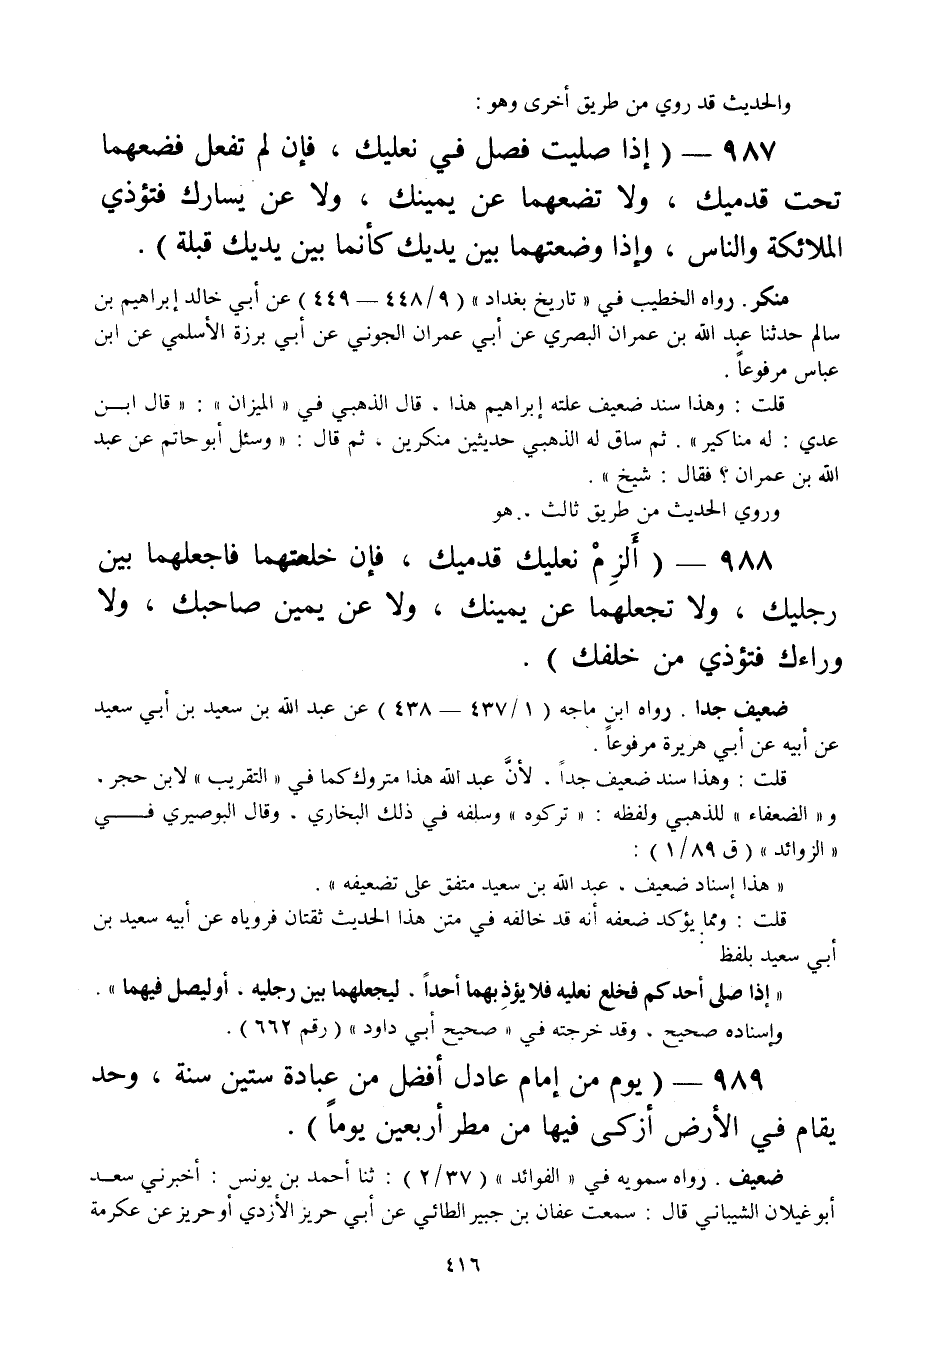 والحديث قد روي من طريق أخرى وهو :
٩٨٧ — ( إذا صليت فصل في نعليك ، فإن لم تفعل فضعهما
تحت قدميك ، ولا تضعهما عن يمينك ، ولا عن يسارك فتؤذي
الملائكة والناس ، وإذا وضعتهما بين يديك كأنما بين يديك قبلة ) .
منكر . رواه الخطيب في « تاريخ بغداد » ( ٩/ ٤٤٨ — ٤٤٩ ) عن أبي خالد إبراهيم بن
سالم حدثنا عبد الله بن عمران البصري عن أبي عمران الجوني عن أبي برزة الأسلمي عن ابن
عباس مرفوعاً .
قلت : وهذا سند ضعيف علته إبراهيم هذا . قال الذهبي في « الميزان » : « قال ابـــن
عدي : له مناكير » . ثم ساق له الذهبي حديثين منكرين ، ثم قال : « وسئل أبو حاتم عن عبد
الله بن عمران ؟ فقال : شيخ » .
وروي الحديث من طريق ثالث .. هو
٩٨٨ — ( أَلزِمْ نعليك قدميك ، فإن خلعتهما فاجعلهما بين
رجليك ، ولا تجعلهما عن يمينك ، ولا عن يمين صاحبك ، ولا
وراءك فتؤذي من خلفك ) .
ضعيف جدا . رواه ابن ماجه ( ١/ ٤٣٧ — ٤٣٨ ) عن عبد الله بن سعيد بن أبي سعيد
عن أبيه عن أبي هريرة مرفوعاً .
قلت : وهذا سند ضعيف جداً . لأنَّ عبد الله هذا متروك كما في « التقريب » لابن حجر .
و « الضعفاء » للذهبي ولفظه : « تركوه » وسلفه في ذلك البخاري . وقال البوصيري فـــــي
« الزوائد » ( ق ٨٩/ ١ ) :
« هذا إسناد ضعيف . عبد الله بن سعيد متفق على تضعيفه » .
قلت : ومما يؤكد ضعفه أنه قد خالفه في متن هذا الحديث ثقتان فروياه عن أبيه سعيد بن
أبي سعيد بلفظ :
« إذا صلى أحدكم فخلع نعليه فلا يؤذِ بهما أحداً . ليجعلهما بين رجليه . أو ليصل فيهما » .
وإسناده صحيح . وقد خرجته في « صحيح أبي داود » ( رقم ٦٦٢ ) .
٩٨٩ — ( يوم من إمام عادل أفضل من عبادة ستين سنة ، وحد
يقام في الأرض أزكى فيها من مطر أربعين يوماً ) .
ضعيف . رواه سمويه في « الفوائد » ( ٣٧/ ٢ ) : ثنا أحمد بن يونس : أخبرني سعــد
أبو غيلان الشيباني قال : سمعت عفان بن جبير الطائي عن أبي حريز الأزدي أو حريز عن عكرمة
٤١٦